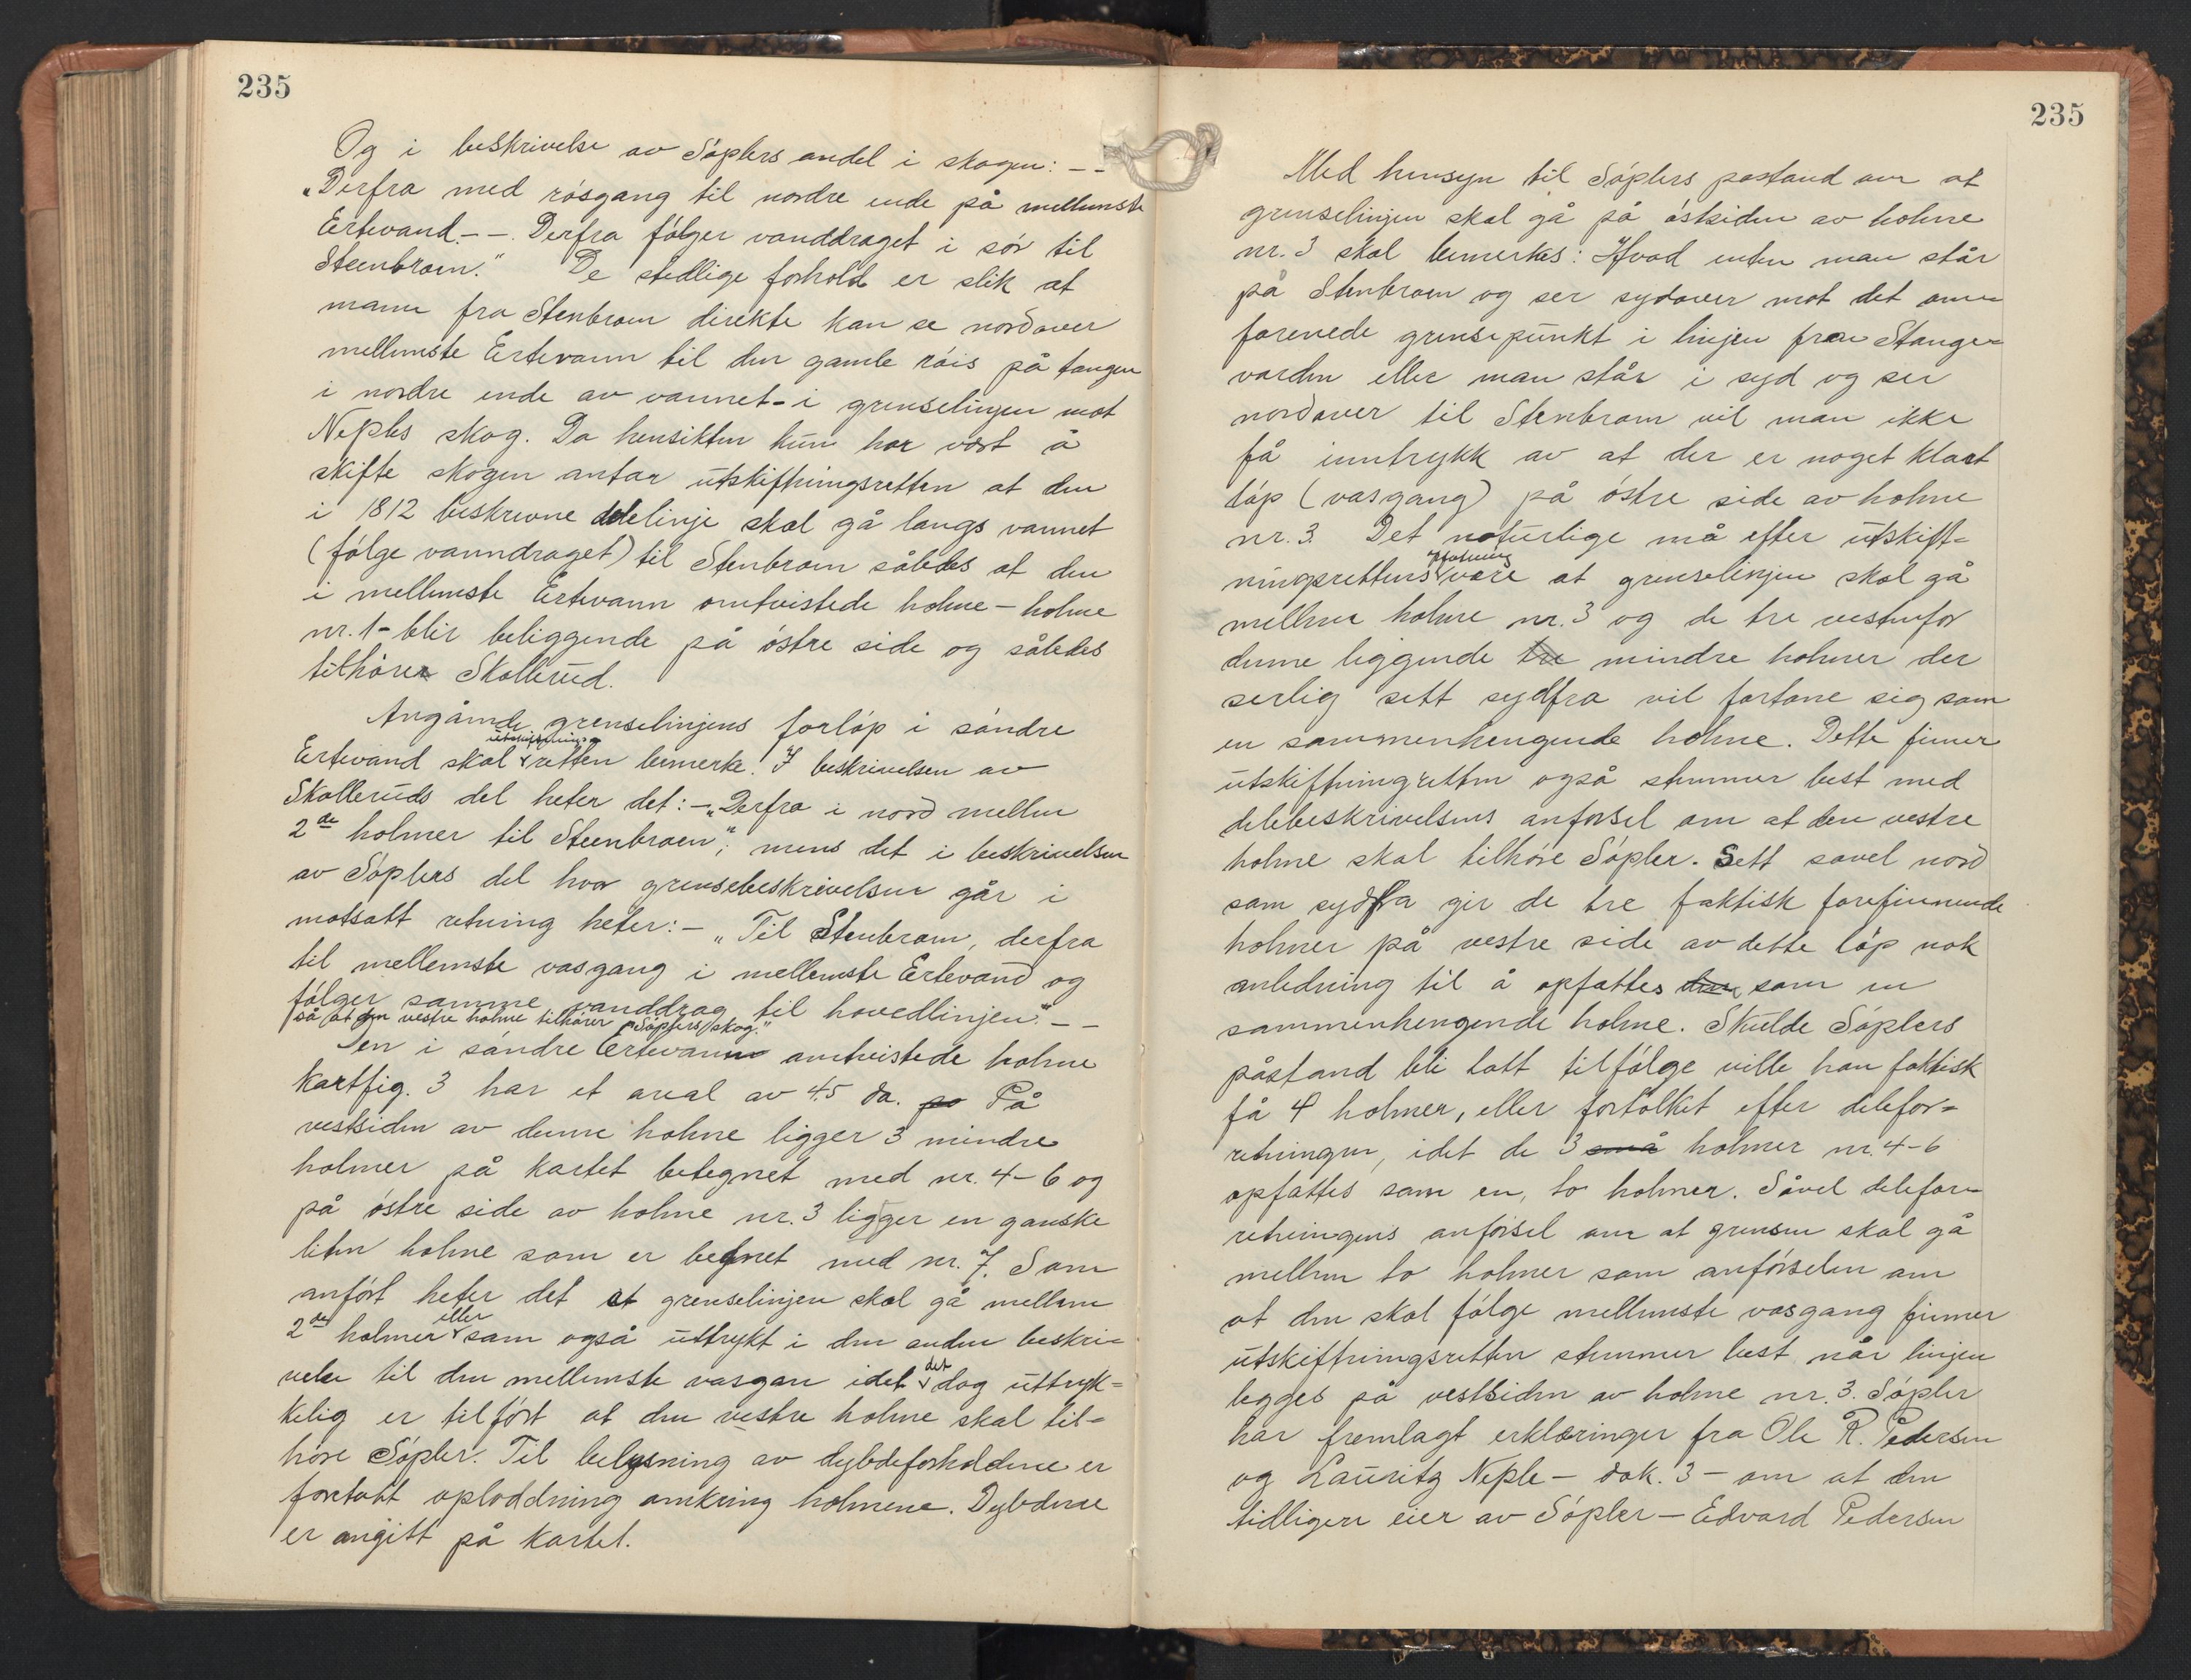 235
Og i beskrivelse av Søplers andel i skogen: --
"Derfra med røsgang til nordre ende på mellemste
Ertevand.--. Derfra følger vanddraget i sör til
Steenbroen." De stedlige forhold er slik at
mann fra Stenbroen direkte kan se nordover
mellemste Ertevann til den gamle röis på tangen
i nordre ende av vannet - i grenselinjen mot
Neples skog. Da hensikten kun har vært å
skifte skogen antar utskiftningsretten at den
i 1812 beskrevne delelinje skal gå langs vannet
(følge vanndraget) til Stenbroen således at den
i mellemste Ertevann omtvistede holme - holme
nr. 1 - blir beliggende på östre side og således
tilhører Skollerud.
Angående grenselinjens forløp i söndre
Ertevand skal utskiftnings retten bemerke: I beskrivelsen av
Skolleruds del heter det: - "Derfra i nord mellem
2de holmer til Steenbroen"; mens det i beskrivelsen
av Söplers del hvor grensebeskrivelsen går i
motsatt retning heter: - "Til Stenbroen, derfra
til mellemste vasgang i mellemste Ertevand og
følger samme vanddrag til hovedlinjen" - -
så at den vestre holme tilhører "Søplers skog."
Den i söndre Ertevann omtvistede holme
kartfig. 3 har et areal av 4.5 da. på På
vestsiden av denne holme ligger 3 mindre
holmer på kartet betegnet med nr. 4-6 og
på östre side av holme nr. 3 ligger en ganske
liten holme som er betgnet med nr. 7. Som
anført heter det at grenselinjen skal gå mellem
2de holmer eller som også uttrykt i den anden beskri-
velse til den mellemste vasgan idet det dog uttryk-
kelig er tilført at den vestre holme skal til-
høre Söpler. Til belysning av dybdeforholdene er
foretatt oplodning omkring holmene. Dybdene
er angitt på kartet.
235
Med hensyn til Söplers pastand om at
grenselinjen skal gå på östsiden av holme
nr. 3 skal bemerkes: Hvad enten man står
på Stenbroen og ser sydover mot det omn
forenede grensepunkt i linjen fra Stange-
varden eller man står i syd og ser
nordover til Stenbroen vil man ikke
få inntrykk av at der er noget klart
löp (vasgang) på östre side av holme
nr. 3. Det naturlige må efter utskift-
ningsrettens være at grenselinjen skal gå
mellem holme nr. 3 og de tre vestenfor
denne liggende tre mindre holmer der
serlig sett sydfra vil fortone sig som
en sammenhengende holme. Dette finner
utskiftningretten også stemmer best med
delebeskrivelsens anførsel om at den vestre
holme skal tilhøre Söpler. Sett savel nord
som sydfra gir de tre faktisk forefinnende
holmer på vestre side av dette löp nok
anledning til å opfattes som en
sammenhengende holme. Skulde Söplers
påstand bli tatt tilfölge ville han faktisk
få 4 holmer, eller fortolket efter delefor-
retningen, idet de 3 små holmer nr. 4-6
opfattes som en, to holmer. Såvel delefor-
retningens anförsel om at grensen skal gå
mellem to holmer som anförselen om
at den skal følge mellemste vasgang finner
utskiftningsretten stemmer best når linjen
legges på vestsiden av holme nr. 3. Söpler
har fremlagt erklæringer fra Ole R. Pedersen
og Lauritz Neple - dok. 3 - om at den
tidligere eier av Söpler - Edvard Pedersen